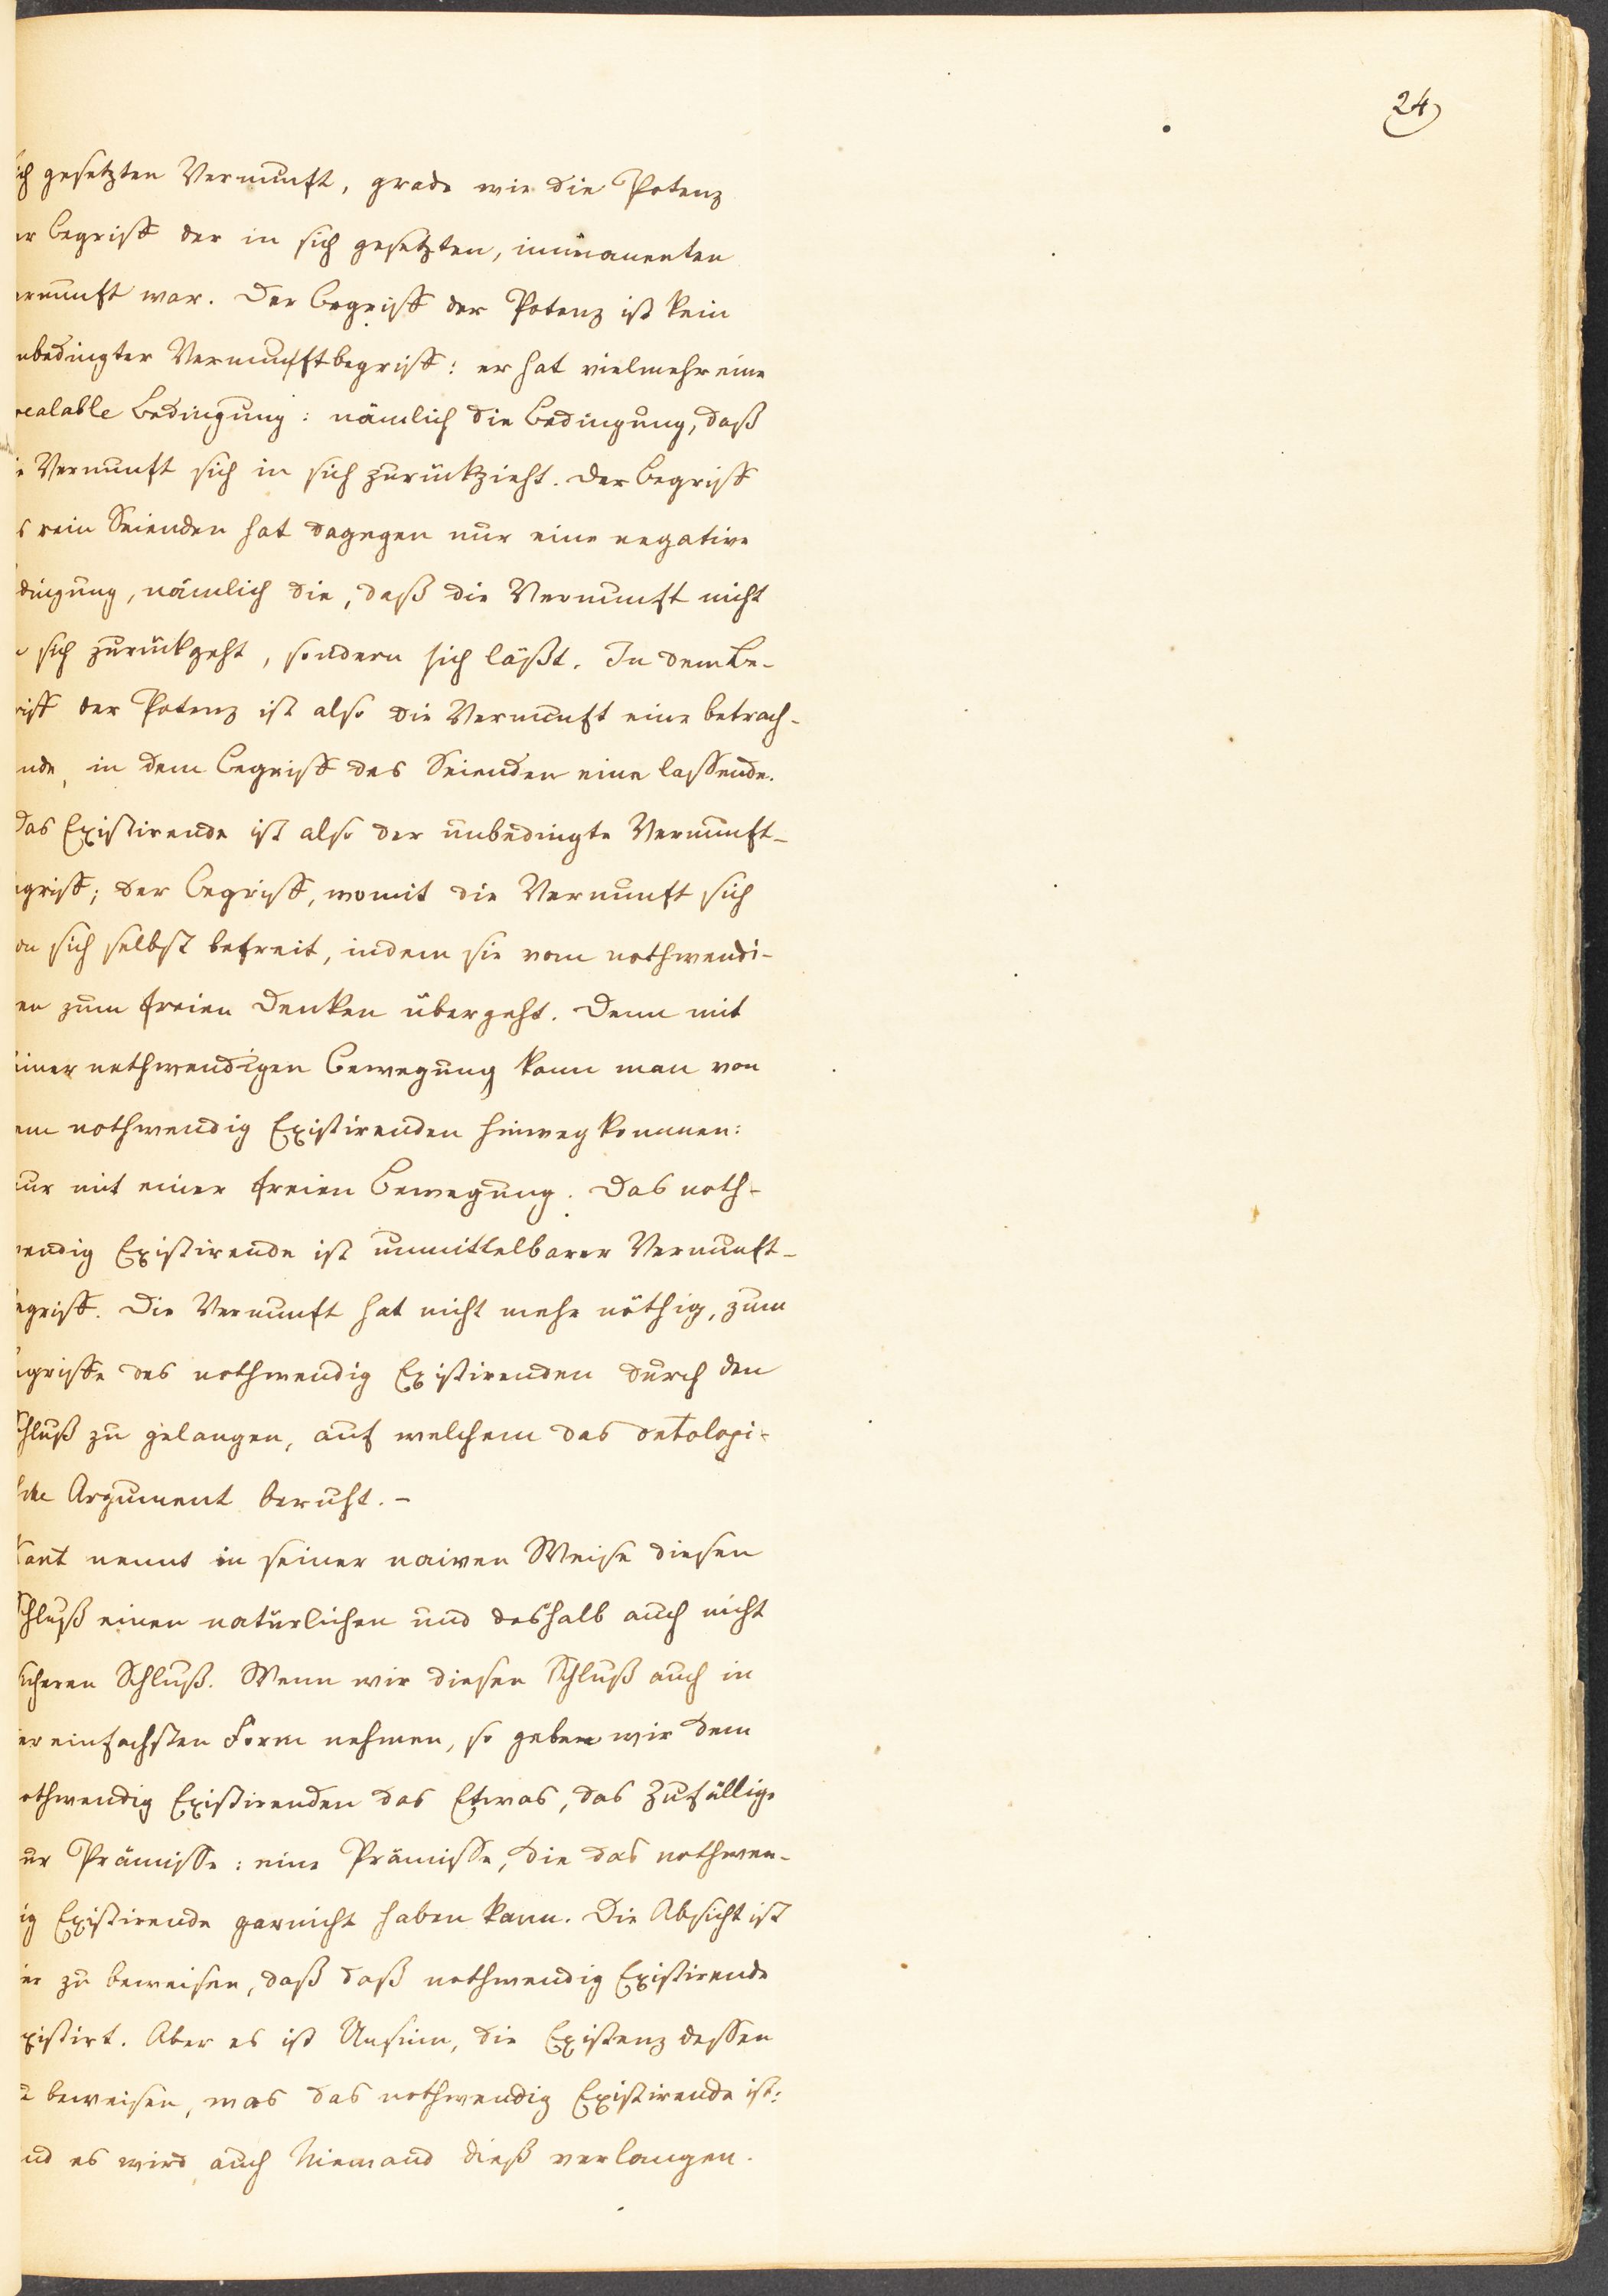 24
ch gesetzten Vernunft, grade wie die Potenz
er Begriff der in sich gesetzten, immanenten
ernunft war. Der Begriff der Potenz ist kein
nbedingter Vernunftbegriff: er hat vielmehr eine
realable Bedingung: nämlich die Bedingung, daß
e Vernunft sich in sich zurückzieht. Der Begriff
s rein Seienden hat dagegen nur eine negative
dingung, nämlich die, daß die Vernunft nicht
n sich zurückgeht, sondern sich läßt. In dem Be-
riff der Potenz ist also die Vernunft eine betrach-
nde, in dem Begriff des Seienden eine lassende.
Das Existirende ist also der unbedingte Vernunft-
egriff; der Begriff, womit die Vernunft sich
on sich selbst befreit, indem sie vom nothwendi-
en zum freien Denken übergeht. Denn mit
einer nothwendigen Bewegung kann man von
em nothwendig Existirenden hinweg kommen:
ur mit einer freien Bewegung. Das noth-
wendig Existirende ist unmittelbarer Vernunft-
egriff. Die Vernunft hat nicht mehr nöthig, zum
egriffe des nothwendig Existirenden durch den
chluß zu gelangen, auf welchem das ontologi-
sche Argument beruht. –
Kant nennt in seiner naiven Weise diesen
Schluß einen natürlichen und deshalb auch nicht
icheren Schluß. Wenn wir diesen Schluß auch in
er einfachsten Form nehmen, so geben wir dem
othwendig Existirenden das Etwas, das Zufällige
ur Prämisse: eine Prämisse, die das nothwen-
ig Existirende garnicht haben kann. Die Absicht ist
ier zu beweisen, daß daß nothwendig Existirende
xistirt. Aber es ist Unsinn, die Existenz dessen
u beweisen, was das nothwendig Existirende ist:
nd es wird auch Niemand dieß verlangen.